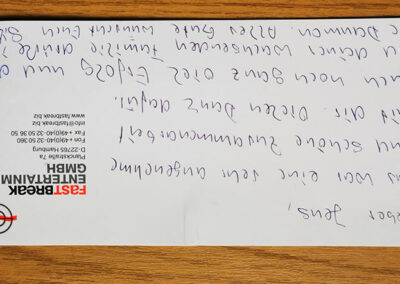 FASTBREAK
ENTERTAINM
GMBH
Planckstraße 7a
D-22765 Hamburg
Fon +49(0)40-32 50 360
Fax +49(0)40-32 50 36 50
info@fastbreak.biz
www.fastbreak.biz
ieber Jens,
war eine sehr angenehme
und schöne Zusammenarbeit
mit dir. Vielen Dank dafür.
noch ganz viel Erfolg und
deiner wachsenden Familie
Daumen. Alles Gute wünscht Euch